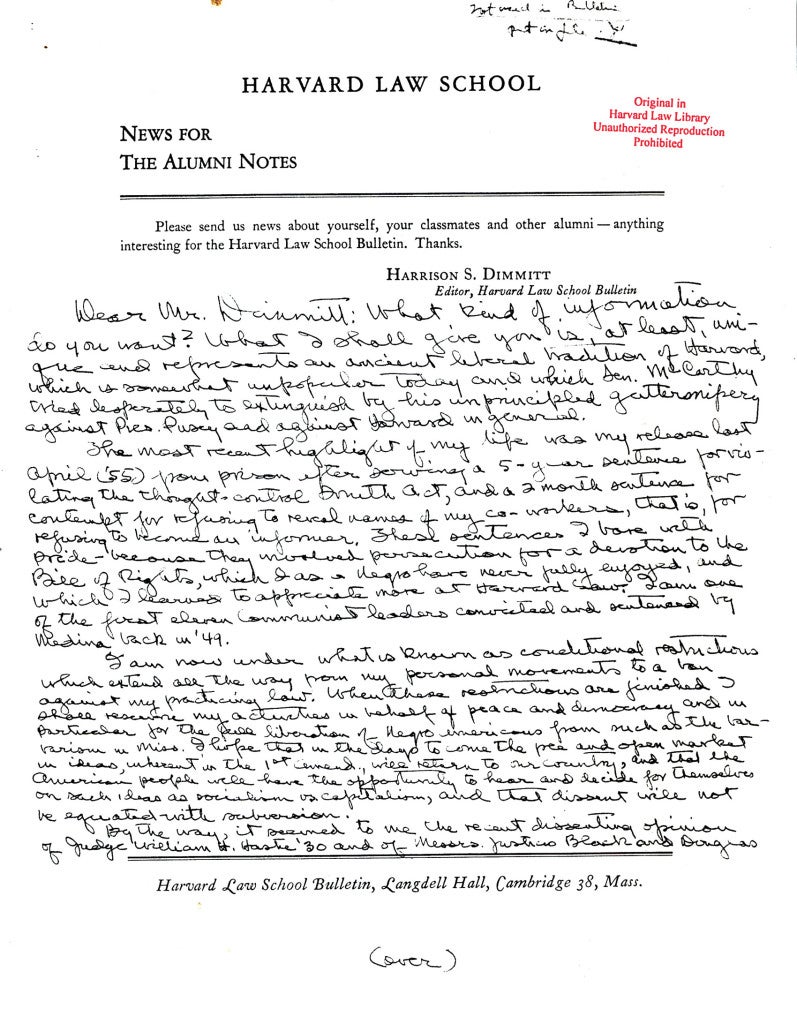 not used in Bulletin
put in file
HARVARD LAW SCHOOL
Original in
Harvard Law Library
Unauthorized Reproduction
Prohibited
NEWS FOR
THE ALUMNI NOTES
Please send us news about yourself, your classmates and other alumni — anything
interesting for the Harvard Law School Bulletin. Thanks.
HARRISON S. DIMMITT
Editor, Harvard Law School Bulletin
Dear Mr. Dimmitt: What kind of information
do you want? What I shall give you is, at least, uni-
que and represents an ancient liberal tradition of Harvard,
which is somewhat unpopular today and which Sen. McCarthy
tried desperately to extinguish by his unprincipled guttersnipery
against Pres. Pusey and against Harvard in general.
The most recent highlight of my life was my release last
April ('55) from prison after serving a 5-year sentence for vio-
lating the thought-control Smith Act, and a 2 month sentence for
contempt for refusing to reveal names of my co-workers, that is, for
refusing to become an informer. These sentences I bore with
pride - because they involved persecution for a devotion to the
Bill of Rights, which I as a Negro have never fully enjoyed, and
which I learned to appreciate more at Harvard Law. I am one
of the first eleven Communist leaders convicted and sentenced by
Medina back in '49.
I am now under what is known as conditional restrictions
which extend all the way from my personal movements to a ban
against my practicing law. When these restrictions are finished I
shall resume my activities in behalf of peace and democracy and in
particular for the full liberation of Negro Americans from such as the bar-
barism in Miss. I hope that in the days to come the free and open market
in ideas, inherent in the 1st Amend., will return to our country, and that the
American people will have the opportunity to hear and decide for themselves
on such ideas as socialism vs. capitalism, and that dissent will not
be equated with subversion.
By the way, it seemed to me the recent dissenting opinion
of Judge William H. Hastie '30 and of Messrs. Justices Black and Douglas
Harvard Law School Bulletin, Langdell Hall, Cambridge 38, Mass.
(over)